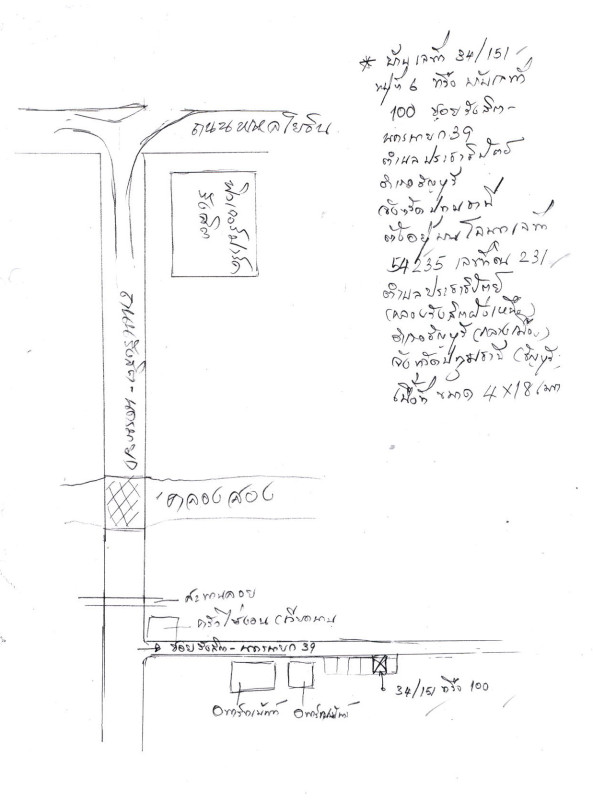 * บ้านเลขที่ 34/151
หมู่ที่ 6 หรือ บ้านเลขที่
100 ซอยรังสิต-
นครนายก 39
ตำบลประชาธิปัตย์
อำเภอธัญบุรี
จังหวัดปทุมธานี
ตั้งอยู่บนโฉนดเลขที่
54235 เลขที่ดิน 231
ตำบลประชาธิปัตย์
(คลองรังสิตฝั่งเหนือ)
อำเภอธัญบุรี (กลางเมือง)
จังหวัดปทุมธานี (ธัญบุรี)
เนื้อที่ ขนาด 4x18 เมตร
ถนนพหลโยธิน
ฟิวเจอร์ปาร์ค
รังสิต
ถนนรังสิต-นครนายก
คลองสอง
สะพานลอย
ครัวไซ่ง่อน เวียดนาม
ซอยรังสิต-นครนายก 39
อพาร์ทเม้นท์ อพาร์ทเม้นท์
34/151 หรือ 100